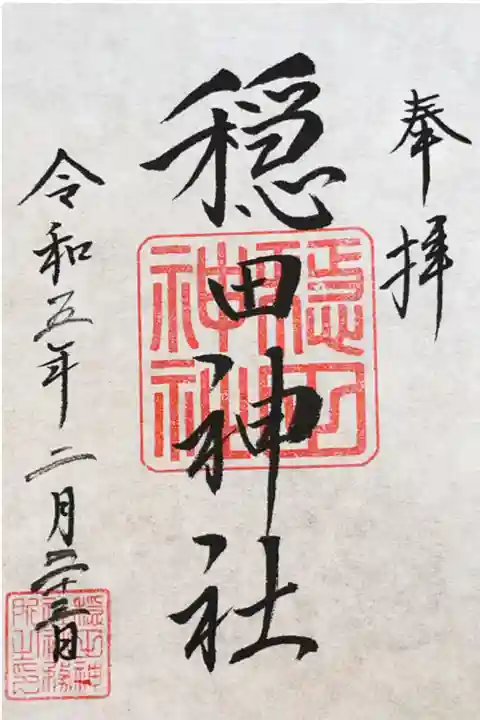 奉拝
穏田神社
令和五年二月二十三日
穏田
神社
穏田神
社社務
所之印